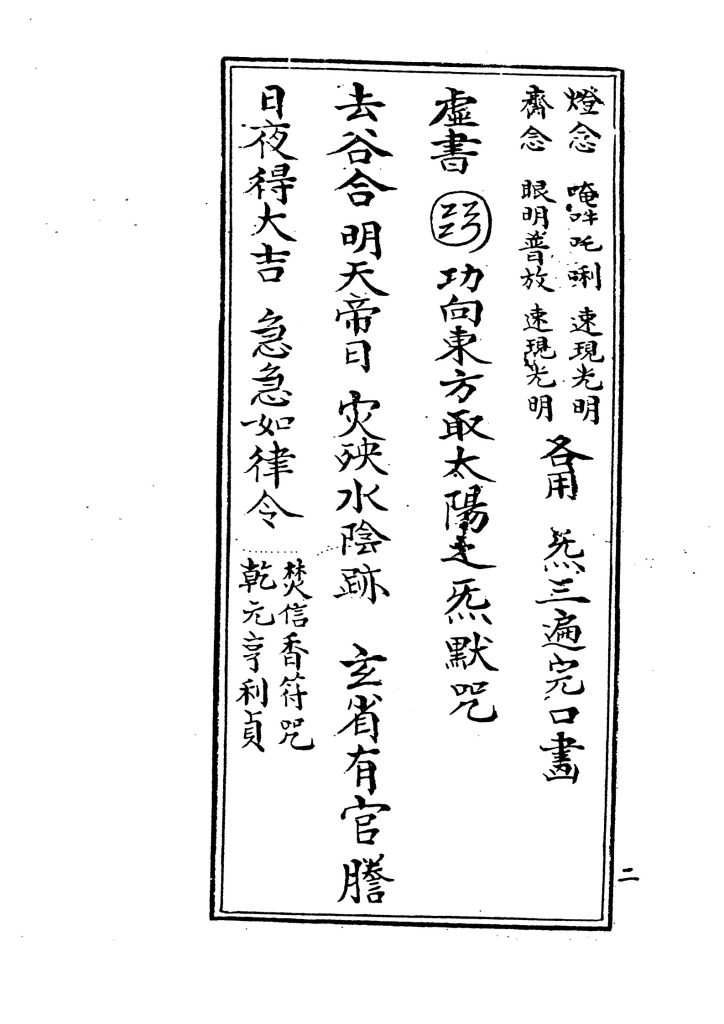 燈念 唵吽吒唎 速現光明
齋念 眼明普放 速現光明
各用 炁三遍完口畫
虛書 功向東方取太陽之炁默咒
去谷合明天帝日 灾殃水陰跡 玄省有官謄
日夜得大吉 急急如律令
焚信香符咒
乾元亨利貞
二